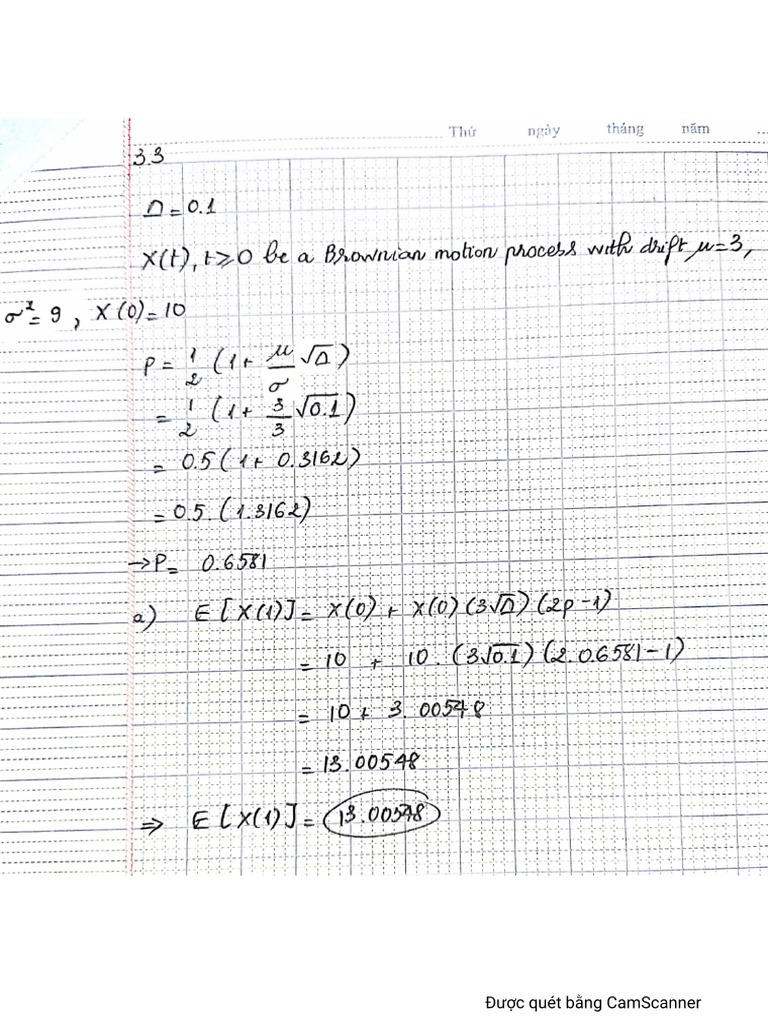 Thứ ngày tháng năm
3.3
Δ = 0.1
X(t), t ≥ 0 be a Brownian motion process with drift μ = 3,
σ² = 9, X(0) = 10
P = 1/2 (1 + μ/σ √Δ)
= 1/2 (1 + 3/3 √0.1)
= 0.5 (1 + 0.3162)
= 0.5. (1.3162)
→ P = 0.6581
a) E[X(1)] = X(0) + X(0) (3√Δ) (2p - 1)
= 10 + 10 . (3√0.1) (2. 0.6581 - 1)
= 10 + 3.00548
= 13.00548
⇒ E[X(1)] = 13.00548
Được quét bằng CamScanner